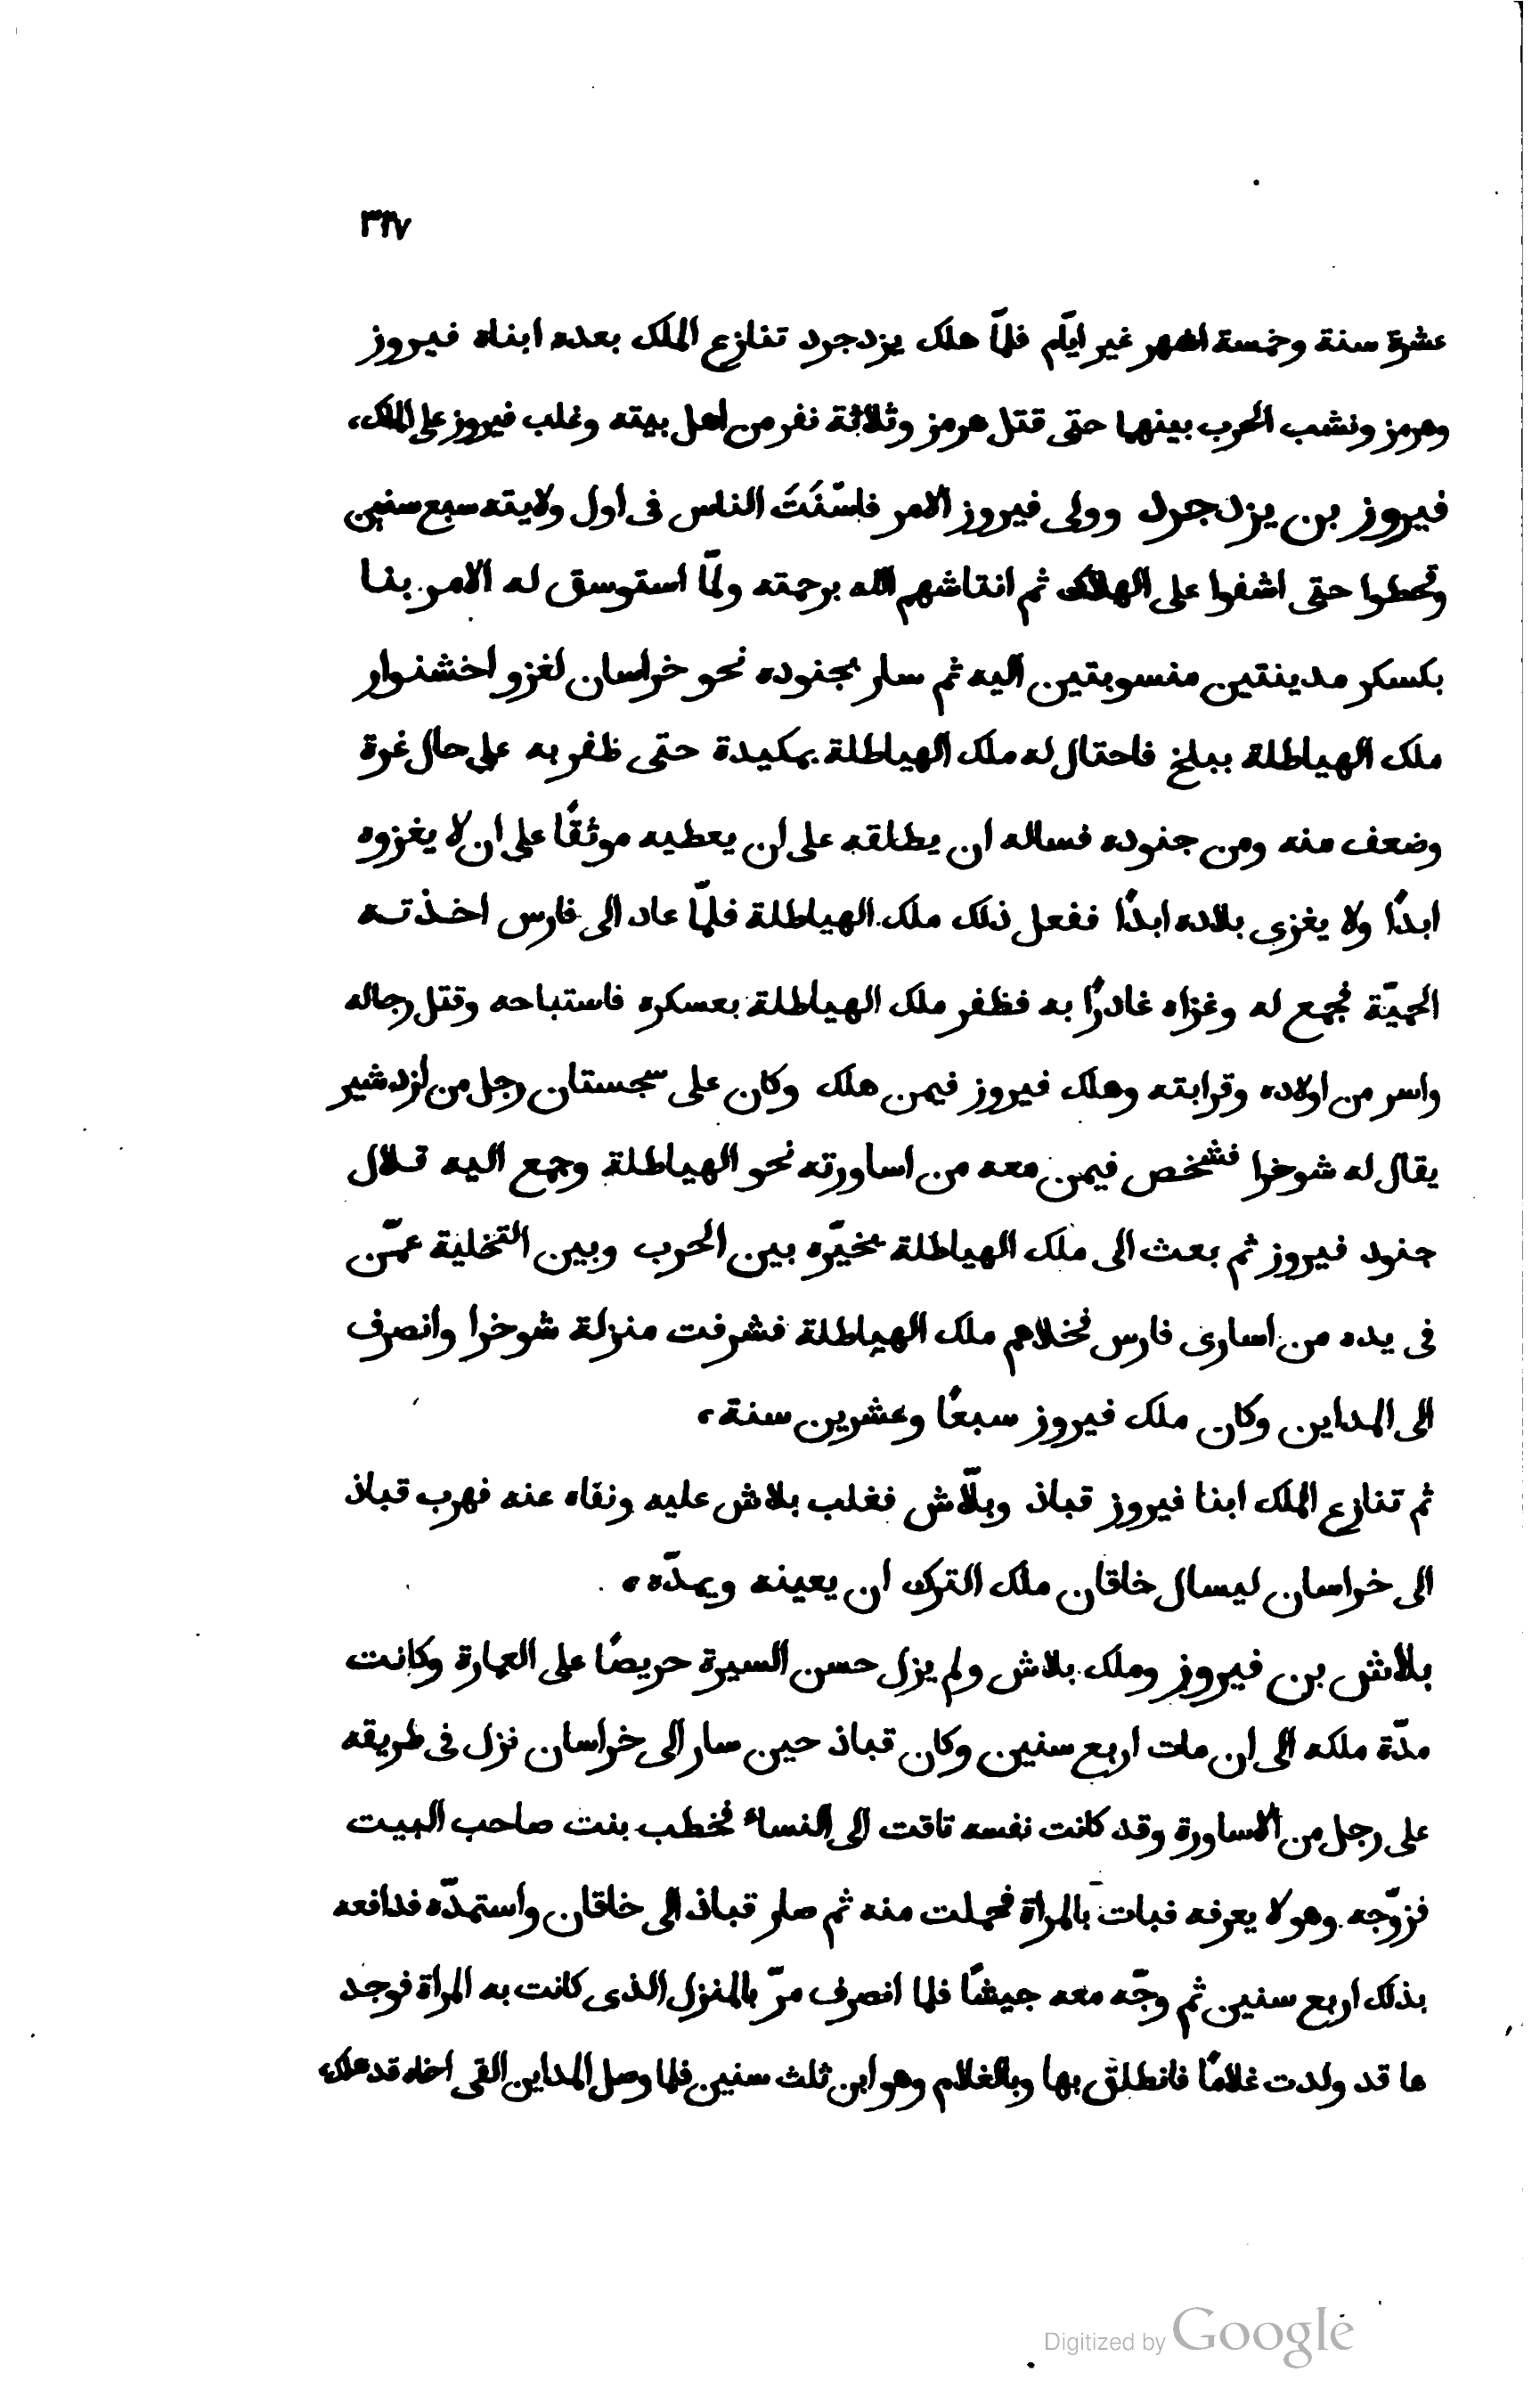 ٣٤٧
عشرة سنة وخمسة اشهر غير ايّام فلمّا هلك يزدجرد تنازع الملك بعده ابناه فيروز
وهرمز ونشب الحرب بينهما حتى قتل هرمز وثلاثة نفر من اهل بيته وغلب فيروز على الملك،
فيروز بن يزدجرد وولى فيروز الامر فاسْنَتَ الناس فى اول ولايته سبع سنين
وقحطوا حتى اشفوا على الهلاك ثم انتاشهم الله برحمته ولمّا استوسق له الامر بنا
بكسكر مدينتين منسوبتين اليه ثم سار بجنوده نحو خراسان لغزو اخشنوار
ملك الهياطلة ببلخ فاحتال له ملك الهياطلة بمكيدة حتى ظفر به على حال غرة
وضعف منه ومن جنوده فساله ان يطلقه على ان يعطيه موثقًا على ان لا يغزوه
ابدًا ولا يغزى بلاده ابدًا ففعل ذلك ملك الهياطلة فلمّا عاد الى فارس اخذته
الحميّة فجمع له وغزاه غادرًا به فظفر ملك الهياطلة بعسكره فاستباحه وقتل رجاله
واسر من اولاده وقرابته وهلك فيروز فيمن هلك وكان على سجستان رجل من ازدشير
يقال له شوخرا فشخص فيمن معه من اساورته نحو الهياطلة وجمع اليه فلال
جنود فيروز ثم بعث الى ملك الهياطلة يخيّره بين الحرب وبين التخلية عمّن
فى يده من اسارى فارس فخلاهم ملك الهياطلة فشرفت منزلة شوخرا وانصرف
الى المداين وكان ملك فيروز سبعًا وعشرين سنة،
ثم تنازع الملك ابنا فيروز قباذ وبلّاش فغلب بلاش عليه ونفاه عنه فهرب قباذ
الى خراسان ليسال خاقان ملك الترك ان يعينه ويمدّه،
بلاش بن فيروز وملك بلاش ولم يزل حسن السيرة حريصًا على العمارة وكانت
مدّة ملكه الى ان مات اربع سنين وكان قباذ حين سار الى خراسان نزل فى طريقه
على رجل من الاساورة وقد كانت نفسه تاقت الى النساء فخطب بنت صاحب البيت
فزوّجه وهو لا يعرفه فبات بالمراة فحملت منه ثم صار قباذ الى خاقان واستمدّه فدافعه
بذلك اربع سنين ثم وجّه معه جيشًا فلما انصرف مرّ بالمنزل الذى كانت به المراة فوجد
ها قد ولدت غلامًا فانطلق بها وبالغلام وهو ابن ثلث سنين فلما وصل المداين القى اخاه قد هلك،
Digitized by Google